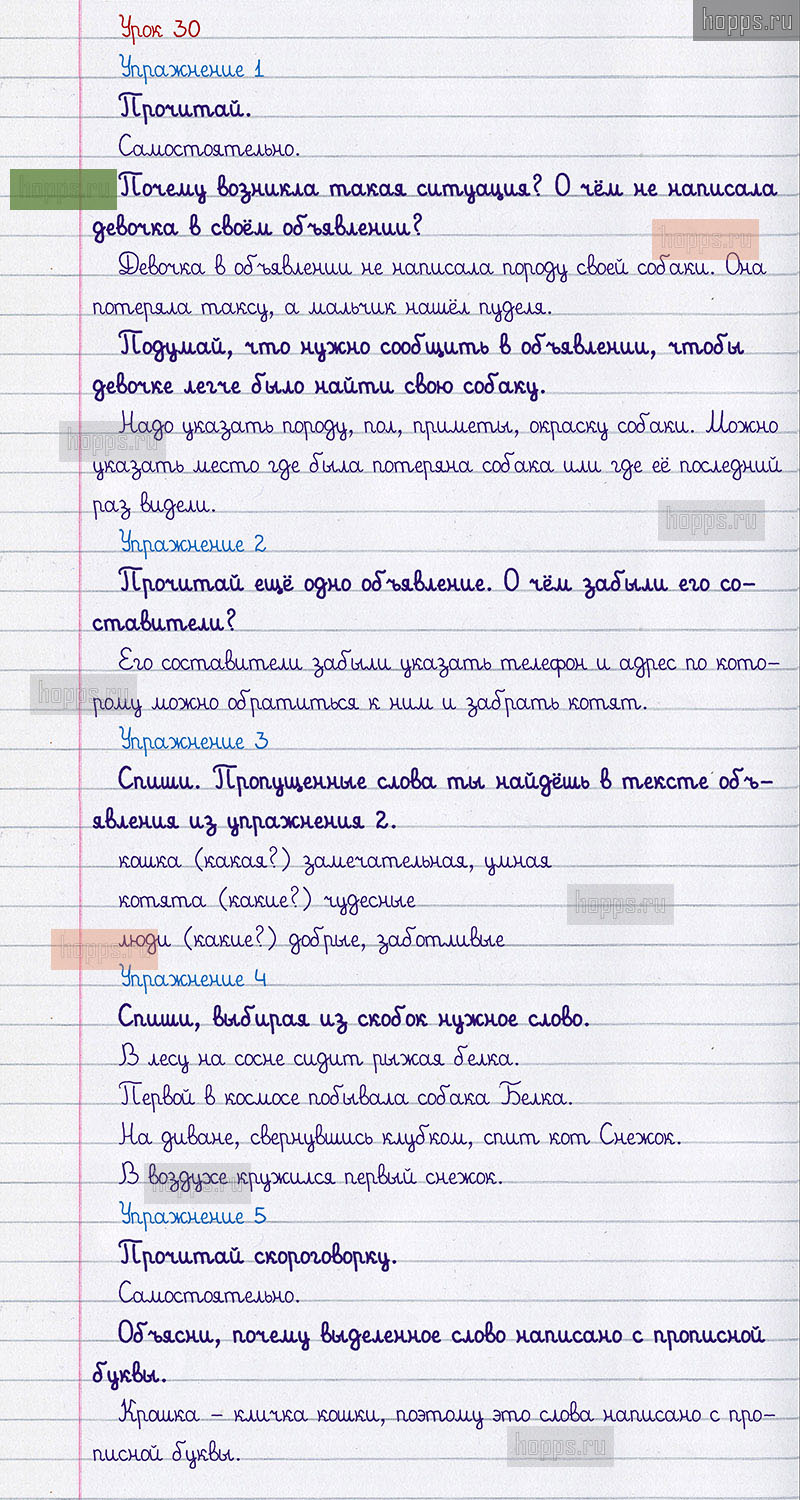 hopps.ru
Урок 30
Упражнение 1
Прочитай.
Самостоятельно.
hopps.ru
Почему возникла такая ситуация? О чём не написала
девочка в своём объявлении?
hopps.ru
Девочка в объявлении не написала породу своей собаки. Она
потеряла таксу, а мальчик нашёл пуделя.
Подумай, что нужно сообщить в объявлении, чтобы
девочке легче было найти свою собаку.
Надо указать породу, пол, приметы, окраску собаки. Можно
hopps.ru
указать место где была потеряна собака или где её последний
раз видели.
hopps.ru
Упражнение 2
Прочитай ещё одно объявление. О чём забыли его со-
ставители?
Его составители забыли указать телефон и адрес по кото-
hopps.ru
рому можно обратиться к ним и забрать котят.
Упражнение 3
Спиши. Пропущенные слова ты найдёшь в тексте объ-
явления из упражнения 2.
кошка (какая?) замечательная, умная
котята (какие?) чудесные
hopps.ru
люди (какие?) добрые, заботливые
hopps.ru
Упражнение 4
Спиши, выбирая из скобок нужное слово.
В лесу на сосне сидит рыжая белка.
Первой в космосе побывала собака Белка.
На диване, свернувшись клубком, спит кот Снежок.
В воздухе кружился первый снежок.
hopps.ru
Упражнение 5
Прочитай скороговорку.
Самостоятельно.
Объясни, почему выделенное слово написано с прописной
буквы.
Крошка – кличка кошки, поэтому это слова написано с про-
писной буквы.
hopps.ru